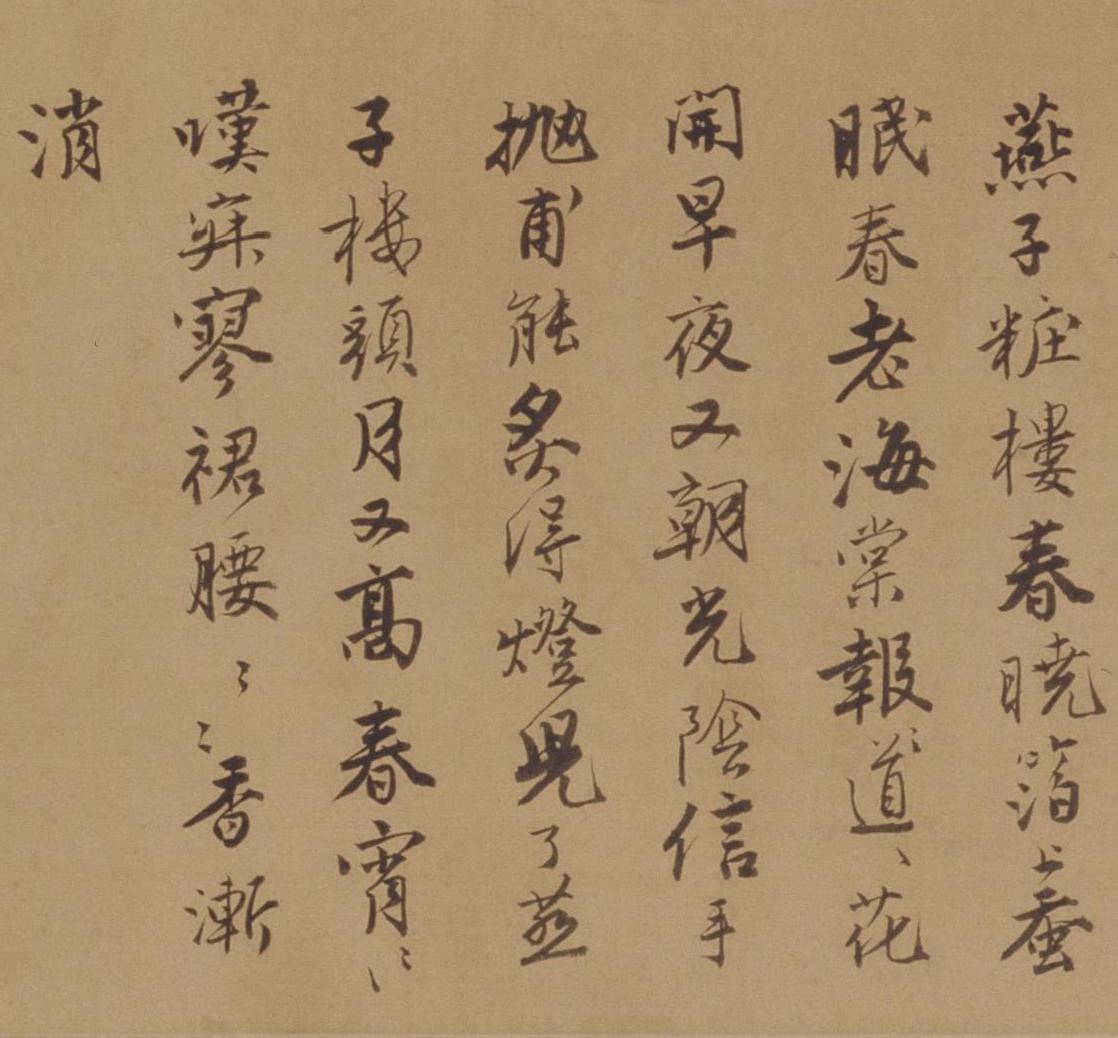 燕子粧樓春曉箔上蚕
眠春老海棠報〻道〻花
開早夜又朝光陰信手
抛甫能炙得燈兒了燕
子楼頭月又高春宵〻〻
嘆寂寥裙腰〻〻香漸
消